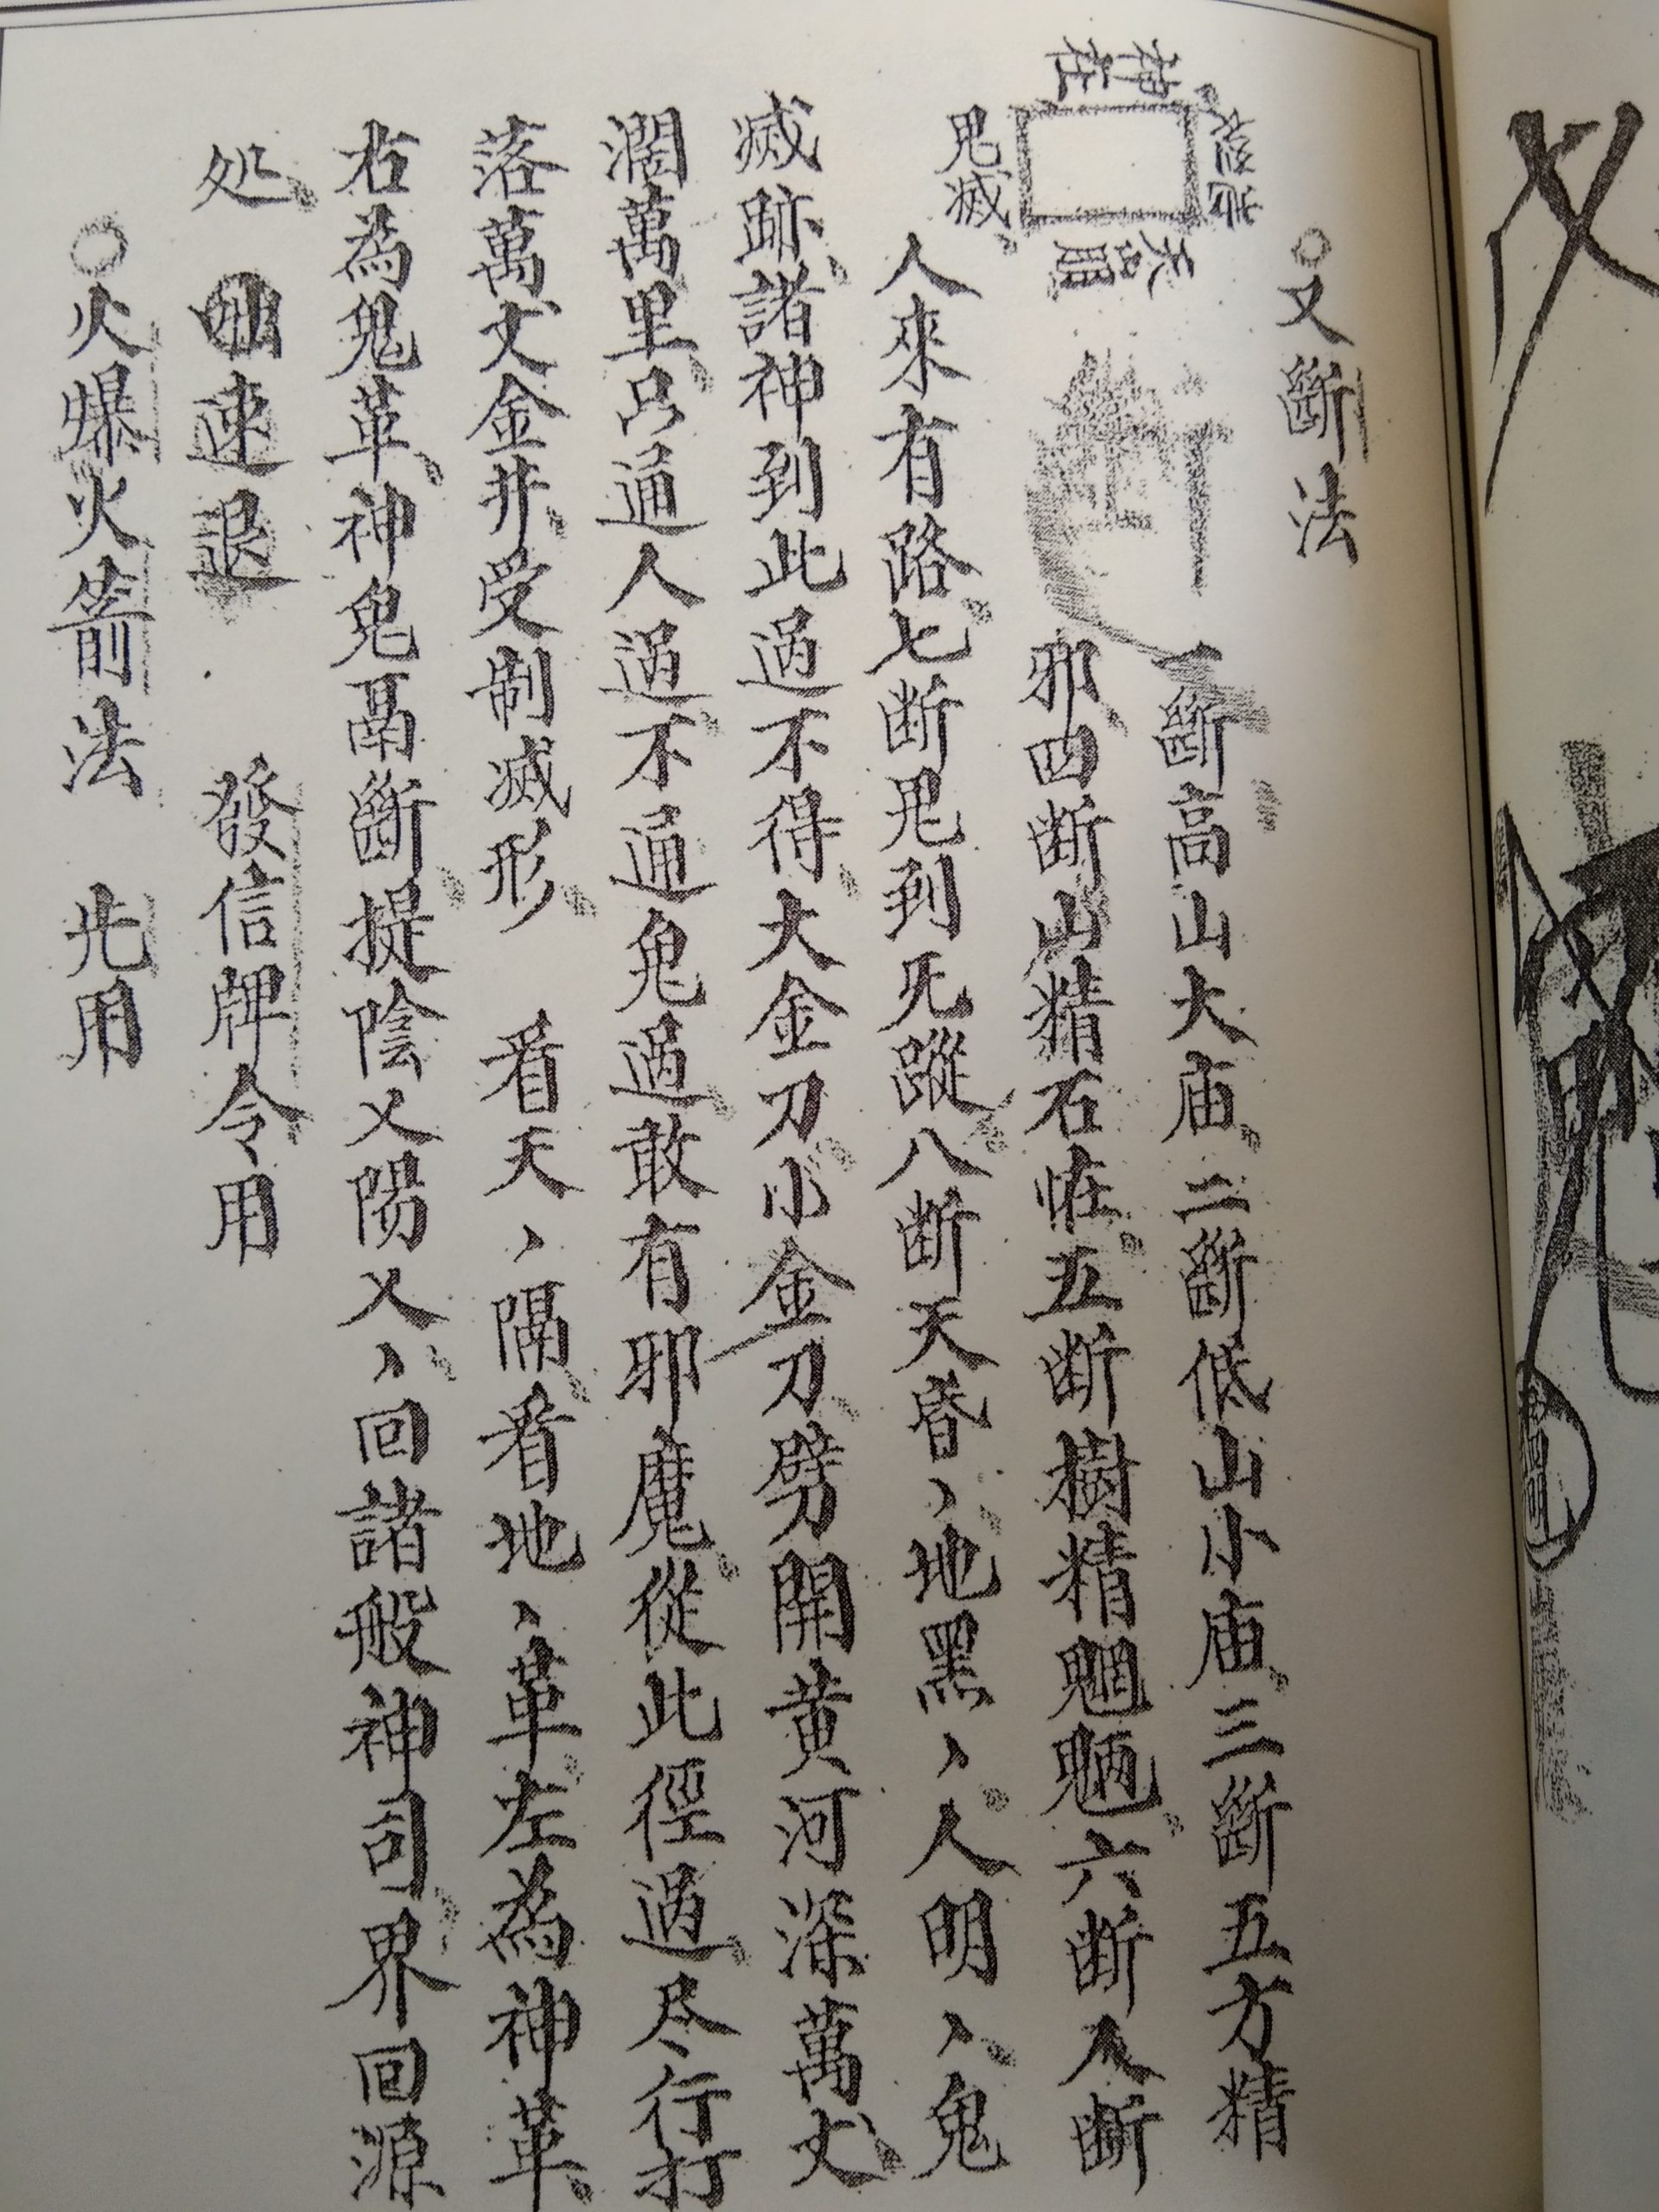 ○又斷法
一斷高山大庙二斷低山小庙三斷五方精
邪四断山精石怪五断樹精魍魎六断人断
鬼滅
人來有路七断鬼到死蹤八断天昏〻地黑〻人明〻鬼
滅跡諸神到此過不得大金刀小金刀劈開黃河深萬丈
濶萬里只通人過不通鬼過敢有邪魔從此徑過尽行打
落萬丈金井受制滅形 看天〻隔看地〻革左為神革
右為鬼革神鬼鬲斷提陰乂陽乂〻回諸般神司界回源
処 速退 發信牌令用
○火爆火箭法 光用